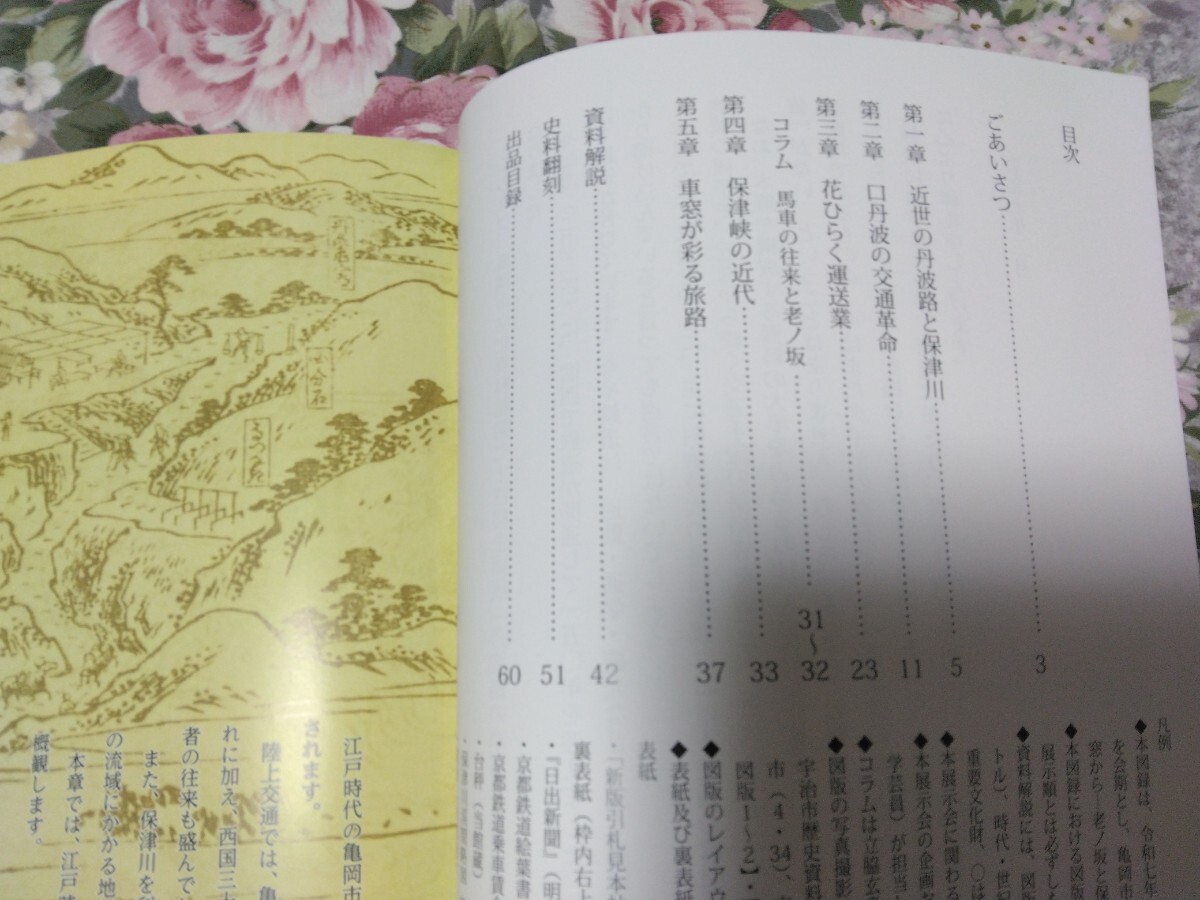 目次
ごあいさつ……3
第一章　近世の丹波路と保津川……5
第二章　口丹波の交通革命……11
第三章　花ひらく運送業……23
コラム　馬車の往来と老ノ坂……31～32
第四章　保津峡の近代……33
第五章　車窓が彩る旅路……37
資料解説……42
史料翻刻……51
出品目録……60
凡例
◆本図録は、令和七年
を会期とし、亀岡市
窓から―老ノ坂と保
◆本図録における図版
展示順とは必ずしも
◆資料解説には、図版
トル)、時代・世紀
重要文化財、○は
◆本展示会に関わる
◆本展示会の企画
学芸員)が担当
◆コラムは立脇玄
◆図版の写真撮影
宇治市歴史資料
市(4・34)、
図版1～2】・
◆図版のレイアウ
◆表紙及び裏表紙
表紙
・「新版引札見本帖
裏表紙(枠内右上
・『日出新聞』(明
・京都鉄道絵葉書
・京都鉄道乗車賃金
・台秤(当館蔵)
江戸時代の亀岡市
されます。
陸上交通では、亀
れに加え、西国三十
者の往来も盛んで
また、保津川を
の流域にかかる地
本章では、江戸時
概観します。